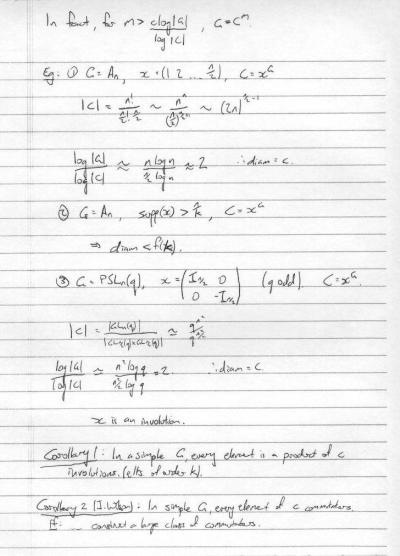 In fact, for m > c log|G| / log|C| , G = C^m.
Eg: ① G = An, x = (1 2 ... n/2), C = x^G
|C| = n! / (n/2)! n/2 ~ n^n / (n/2)^(n/2) ~ (2n)^(n/2 - 1)
log|G| / log|C| ≈ n log n / n/2 log n ≈ 2 ∴ diam = c.
② G = An, supp(x) > n/k, C = x^G
⇒ diam < f(k).
③ G = PSLn(q), x = (I_n/2 0 (q odd), C = x^G.
0 -I_n/2)
|C| = |GLn(q)| / |GL_n/2(q) × GL_n/2(q)| ≈ q^(n²) / q^(n²/2)
log|G| / log|C| ≈ n² log q / n²/2 log q = 2. ∴ diam = c
x is an involution.
Corollary 1: In a simple G, every element is a product of c
involutions. (elts of order k).
Corollary 2 (J. Wilson): In simple G, every element of c commutators.
Pf: construct a large class of commutators.